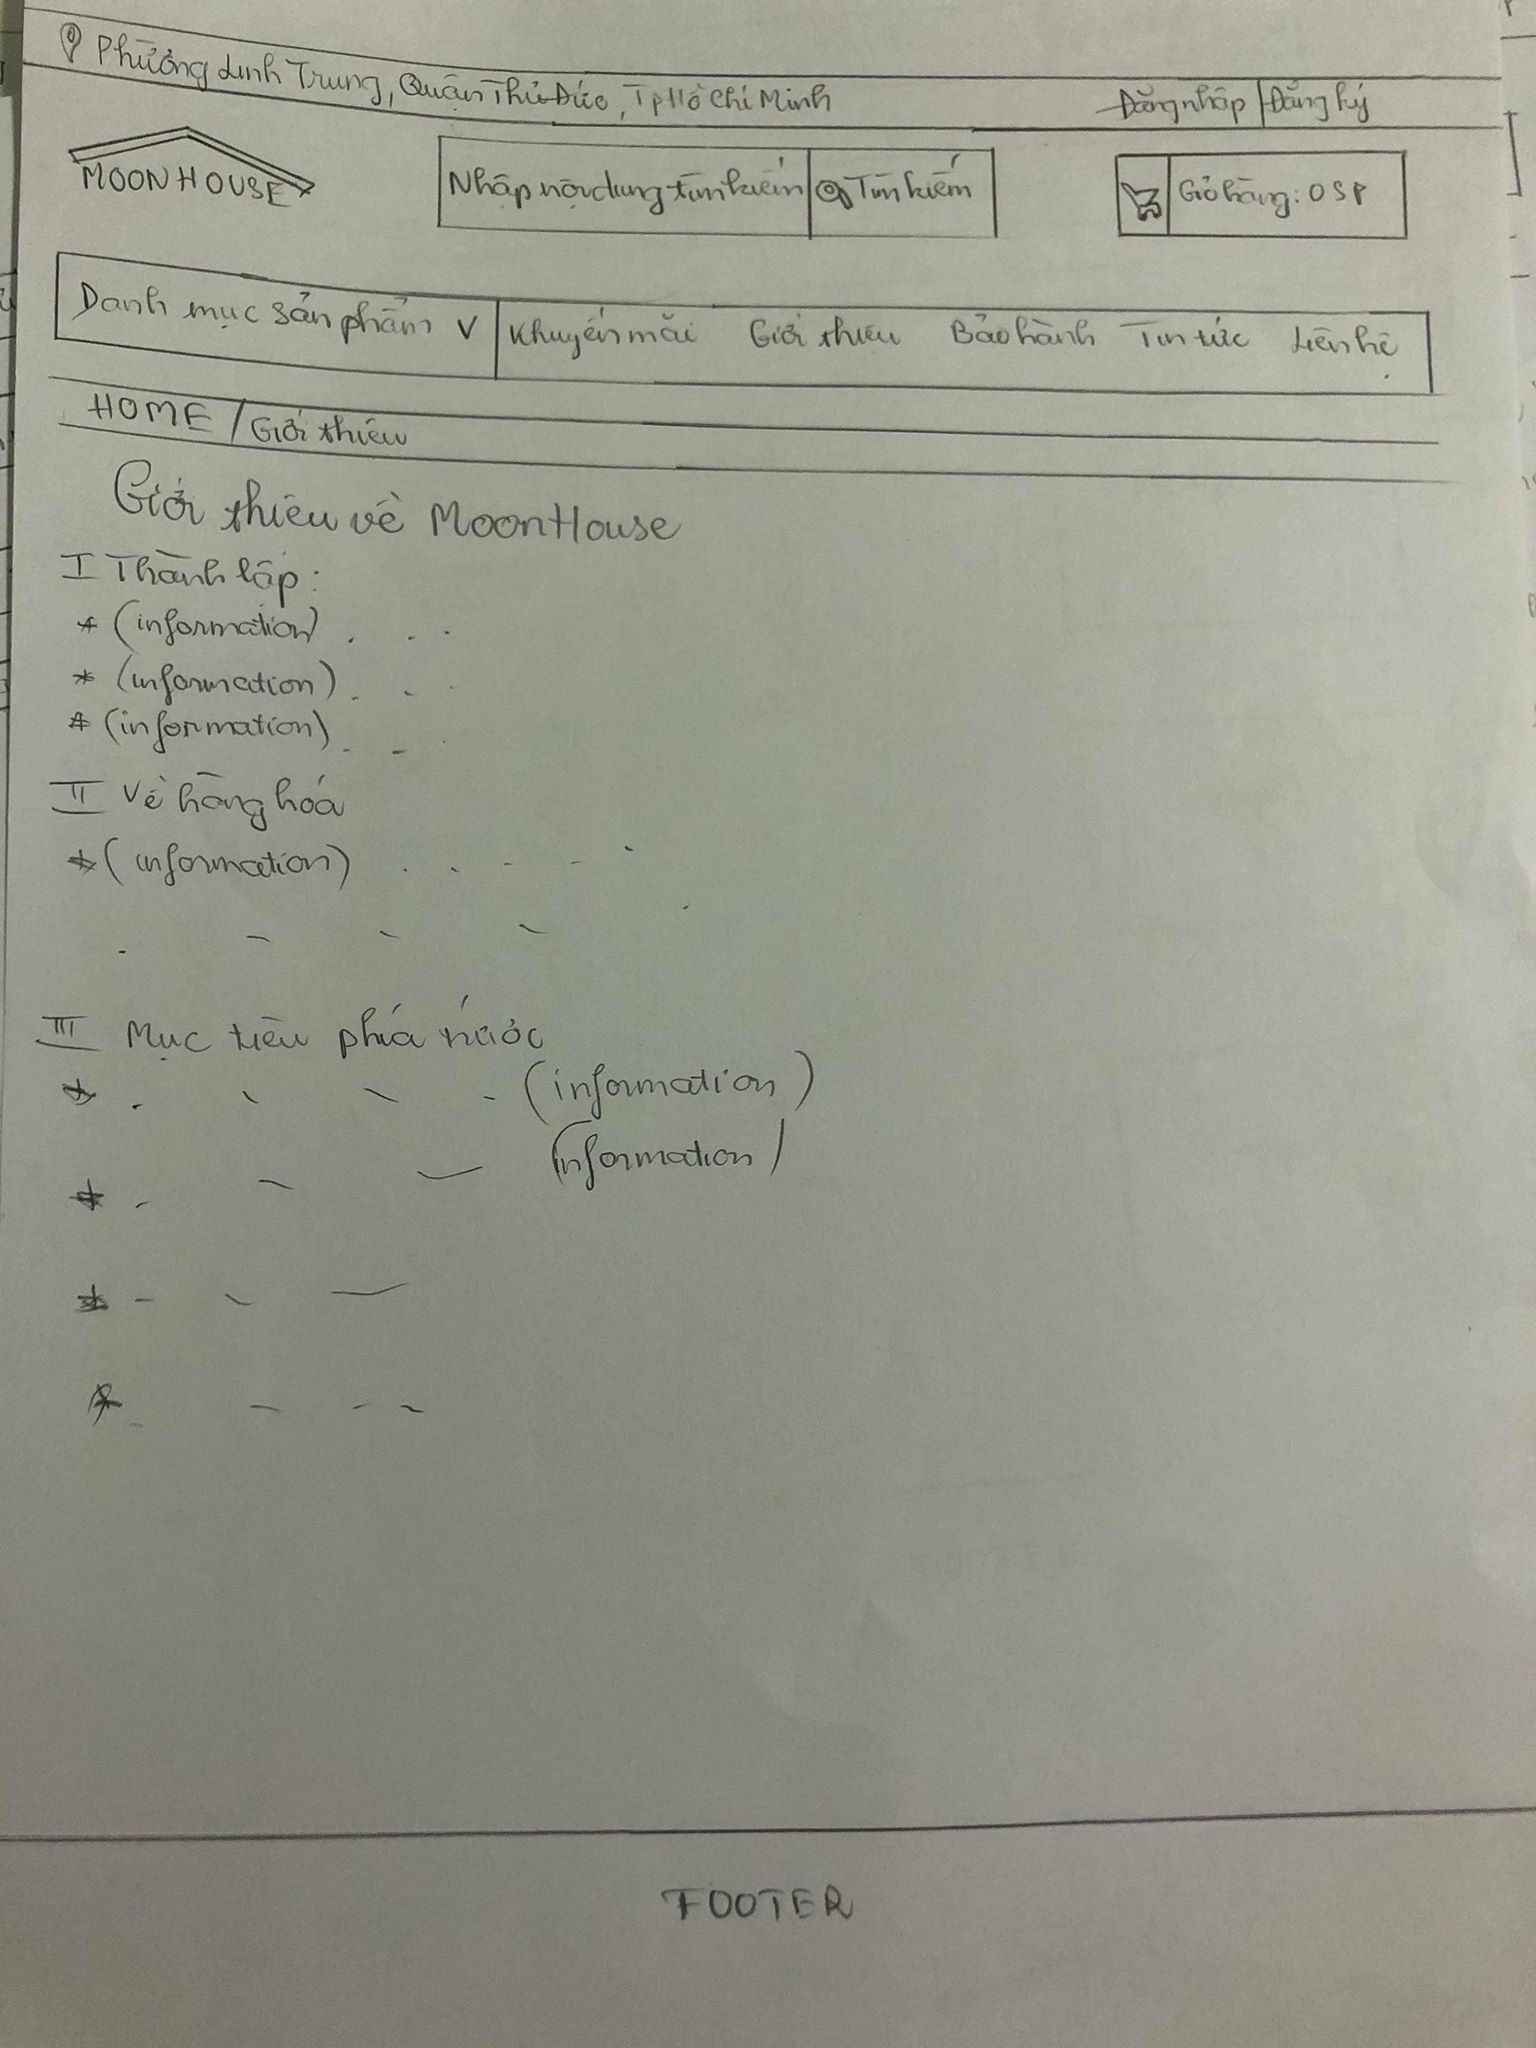 Phường Linh Trung, Quận Thủ Đức, Tp Hồ Chí Minh Đăng nhập | Đăng ký
MOONHOUSE
Nhập nội dung tìm kiếm Tìm kiếm Giỏ hàng: 0 SP
Danh mục sản phẩm V Khuyến mãi Giới thiệu Bảo hành Tin tức Liên hệ
HOME / Giới thiệu
Giới thiệu về MoonHouse
I Thành lập:
* (information) . . .
* (information) . . .
* (information) . . .
II Về hàng hóa
* (information) . . - - .
. - - - .
III Mục tiêu phía trước
* . - - - (information)
* . - - (information)
* - - -
* - - - -
FOOTER